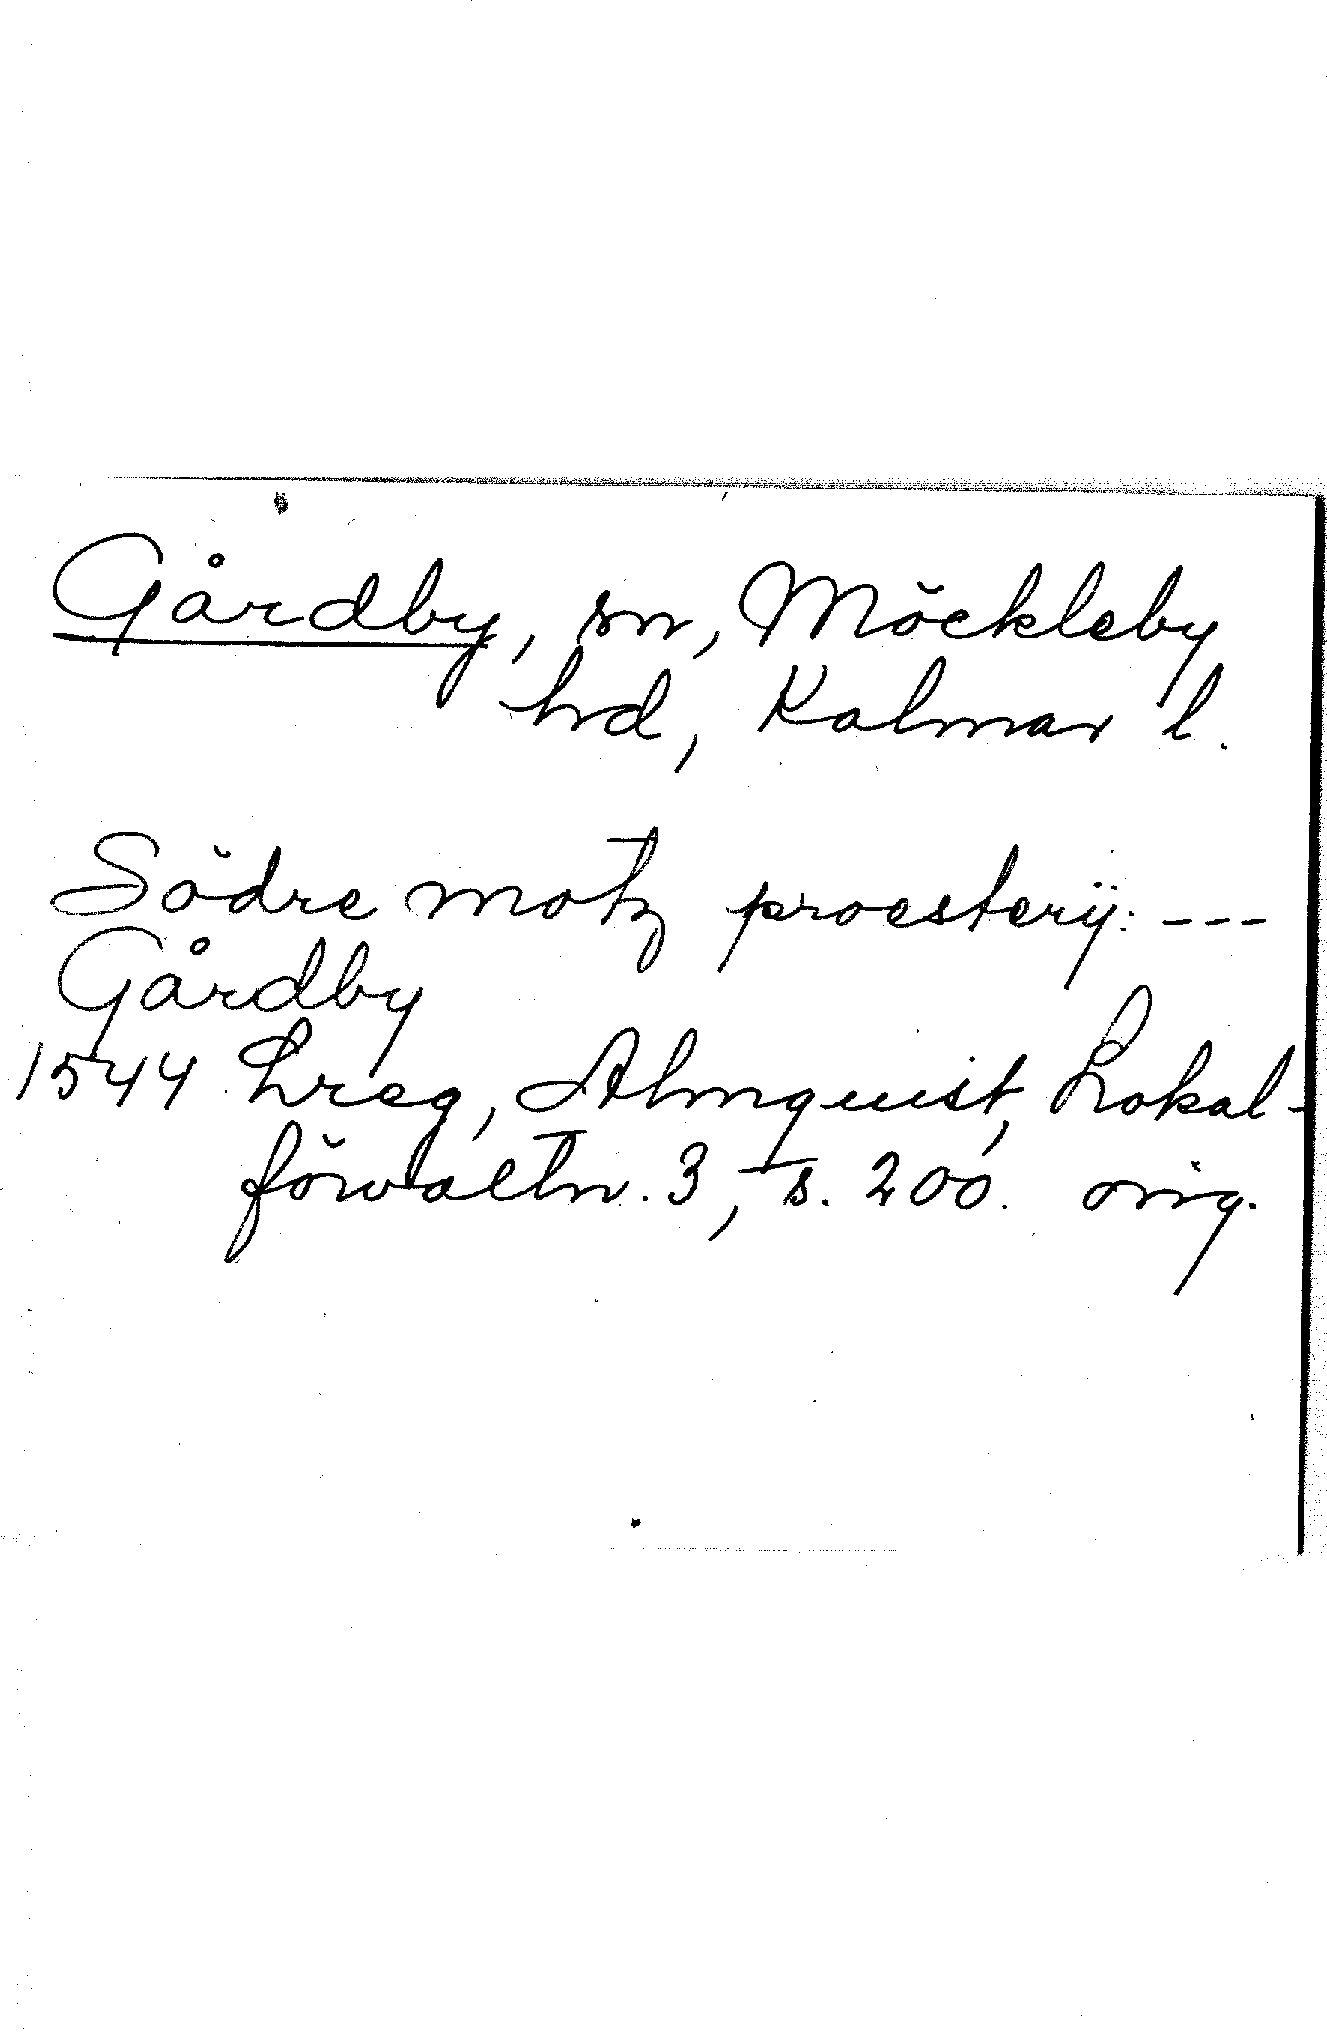 Gårdby, sn, Möckleby
hd, Kalmar l.
Södre motz proesterÿ: ---
Gårdby
1544 Lreg, Almquist, Lokal-
förvaltn. 3, s. 200. orig.